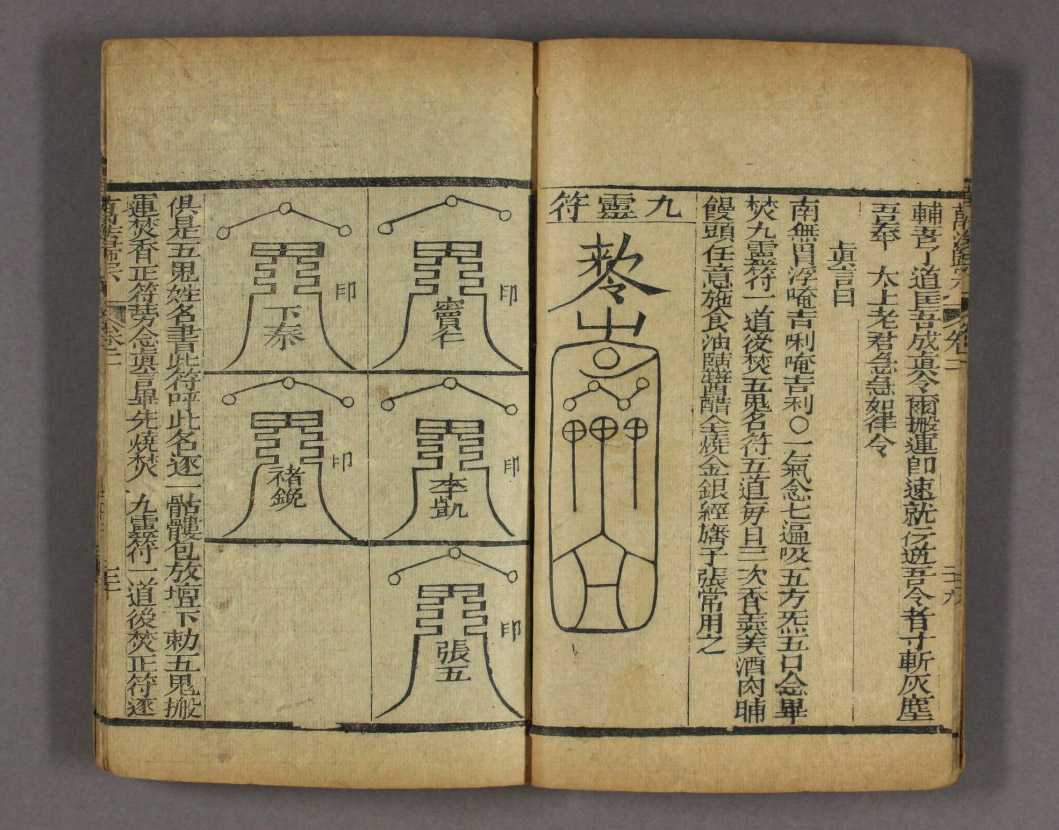 萬法歸宗
卷二
二十九
輔吾了道匡吾成眞令爾搬運卽速就行違吾令者寸斬灰塵
吾奉　太上老君急急如律令
眞言曰
南無胃浮唵吉唎唵吉利〇一氣念七遍吸五方炁五口念畢
焚九靈符一道後焚五鬼名符五道每日三次香羹美酒肉脯
饅頭任意施食油鹽醬醋全燒金銀經旛子張常用之
九靈符
印
竇仁
印
李凱
印
張五
印
下泰
印
禇鋭
俱是五鬼姓名書此符呼此名逐一骷髏包放壇下勅五鬼搬
運焚香正符旁念眞言畢先燒焚　九靈符一道後焚正符逐
萬法歸宗
卷二
三十